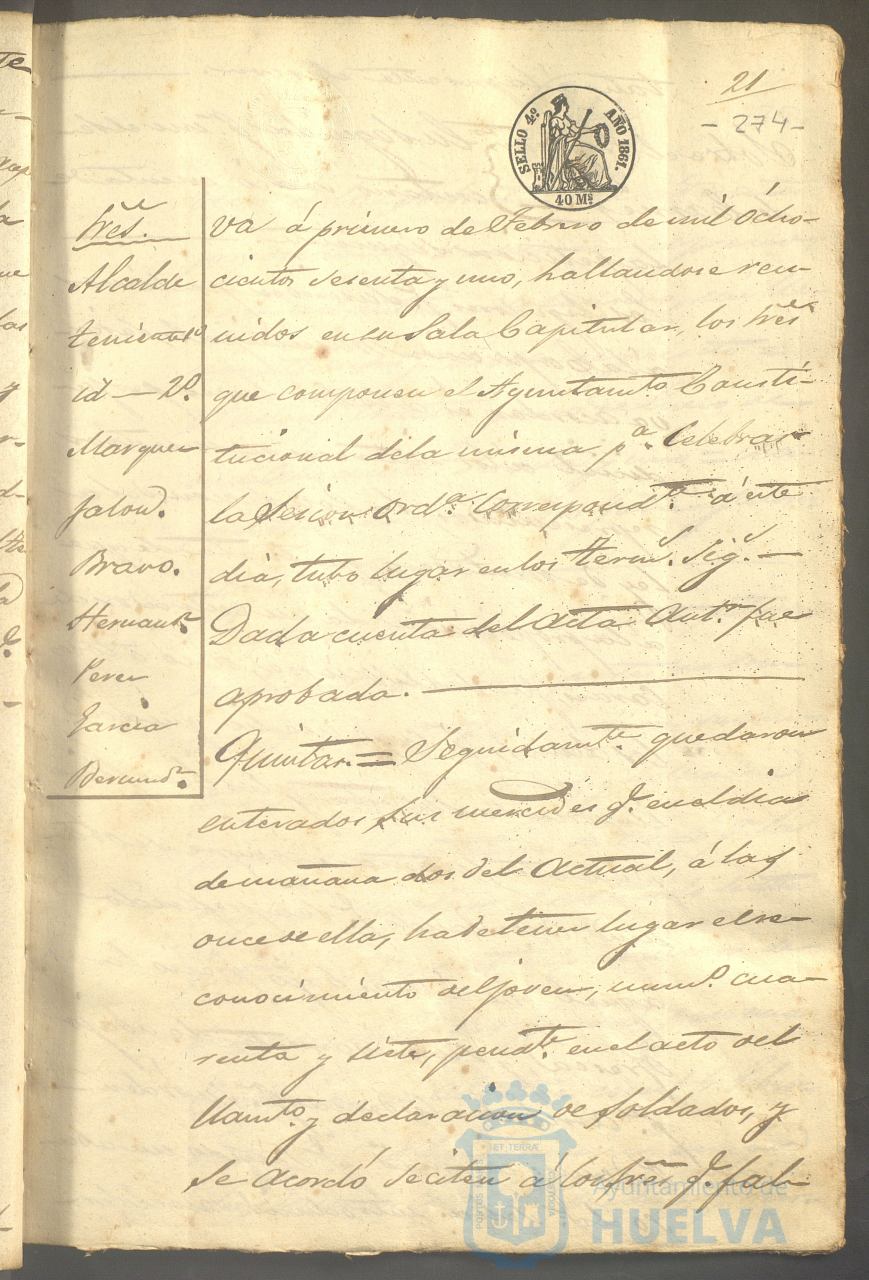 21
- 274 -
SELLO 4º AÑO 1861.
40 Ms.
Sres.
Alcalde
Teniente 1º
id — 2º.
Marquez
Jalon.
Bravo.
Hernandz.
Perez
Garcia
Bermudz.
va á primero de Febrero de mil ócho-
cientos sesenta y uno, hallandose reu-
nidos en su Sala Capitular, los Sres
que componen el Ayuntamto Consti-
tucional de la misma pa. Celebrar
la Sesion Orda. Correspondte. á este
dia, tubo lugar en los term.s sigs. —
Dada cuenta del Acta Antr. fue
aprobada. —
Quintas = Seguidamte. quedaron
enterados sus mercedes q. en el dia
de mañana dos del Actual, á las
once de ella, ha de tener lugar el re-
conocimiento del joven, numo. cua-
renta y siete, pendte. en el acto del
llamto. y declaracion de Soldados, y
se acordó se citen á los Sres q. fal-
PORTUS MARIS ET TERRÆ CUSTODIA
Ayuntamiento de
HUELVA